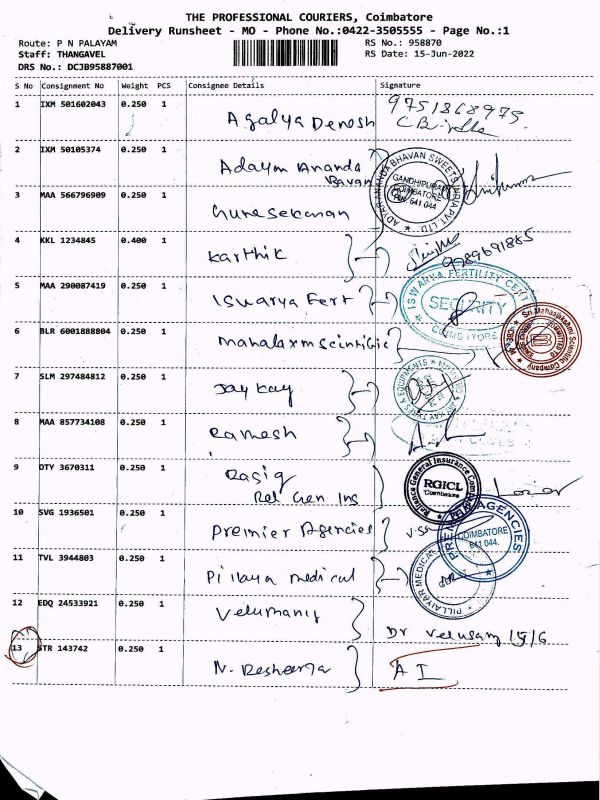 THE PROFESSIONAL COURIERS, Coimbatore
Delivery Runsheet - MO - Phone No.:0422-3505555 - Page No.:1
Route: P N PALAYAM RS No.: 958870
Staff: THANGAVEL RS Date: 15-Jun-2022
DRS No.: DCJB95887001
S No Consignment No Weight PCS Consignee Details Signature
1 IXM 501602043 0.250 1 Agalya Denesh 9751868975
2 IXM 50105374 0.250 1 Adayar Ananda
Bavan
ADYAR ANANDA BHAVAN SWEETS INDIA PVT. LTD.
GANDHIPURAM
COIMBATORE
641 044
3 MAA 566796909 0.250 1 Gunesekaran
4 KKL 1234845 0.400 1 Karthik 9789691885
5 MAA 290087419 0.250 1 Iswarya Fert
ISWARYA FERTILITY CENT
SECURITY
COIMBATORE
6 BLR 6001888804 0.250 1 Mahalaxm Scintific
Sri Mahaalakshmi Scientific Company
7 SLM 297484812 0.250 1 Jay Kay
& EQUIPMENTS
8 MAA 857734108 0.250 1 Ramesh
9 DTY 3670311 0.250 1 Rasiq
Rel Gen Ins
Reliance General Insurance Com
RGICL
Coimbatore
10 SVG 1936501 0.250 1 Premier Agencies
PREMIER AGENCIES
COIMBATORE
641 044.
11 TVL 3944803 0.250 1 Pillaya medical
PILLAIYAR MEDICAL
12 EDQ 24533921 0.250 1 Velumany Dr Velusamy 15/6
13 STR 143742 0.250 1 N. Desheega A I